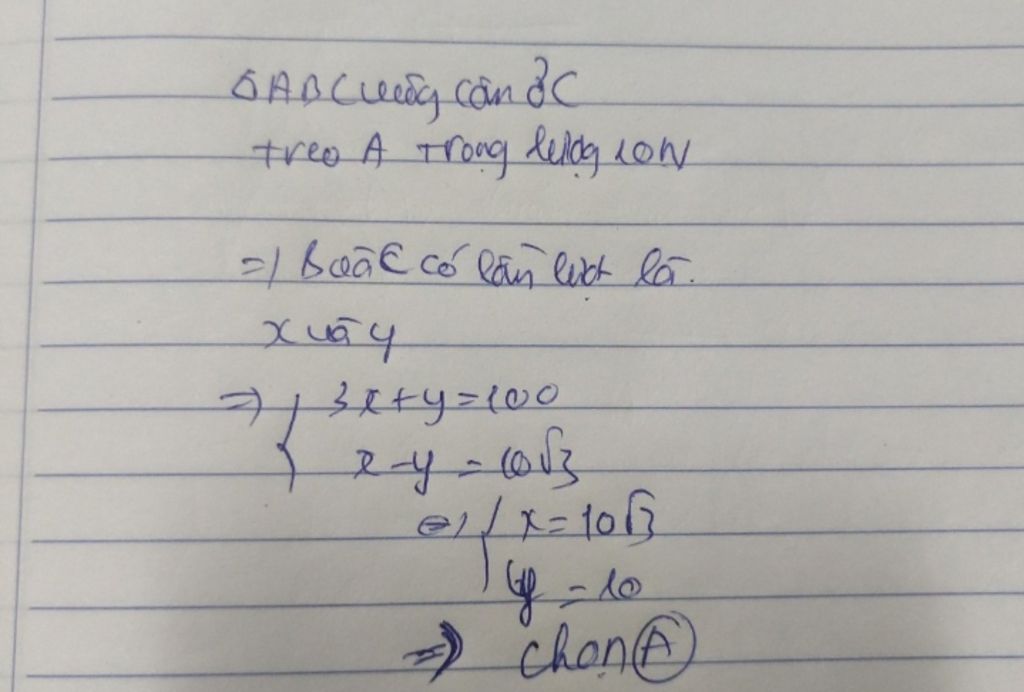 ΔABC vuông cân ở C
treo A trọng lượng 10N
=> B và C có lần lượt là.
x và y
=> { 3x+y=100
x-y = 10√3
<=> { x=10√3
y = 10
=> chọn A